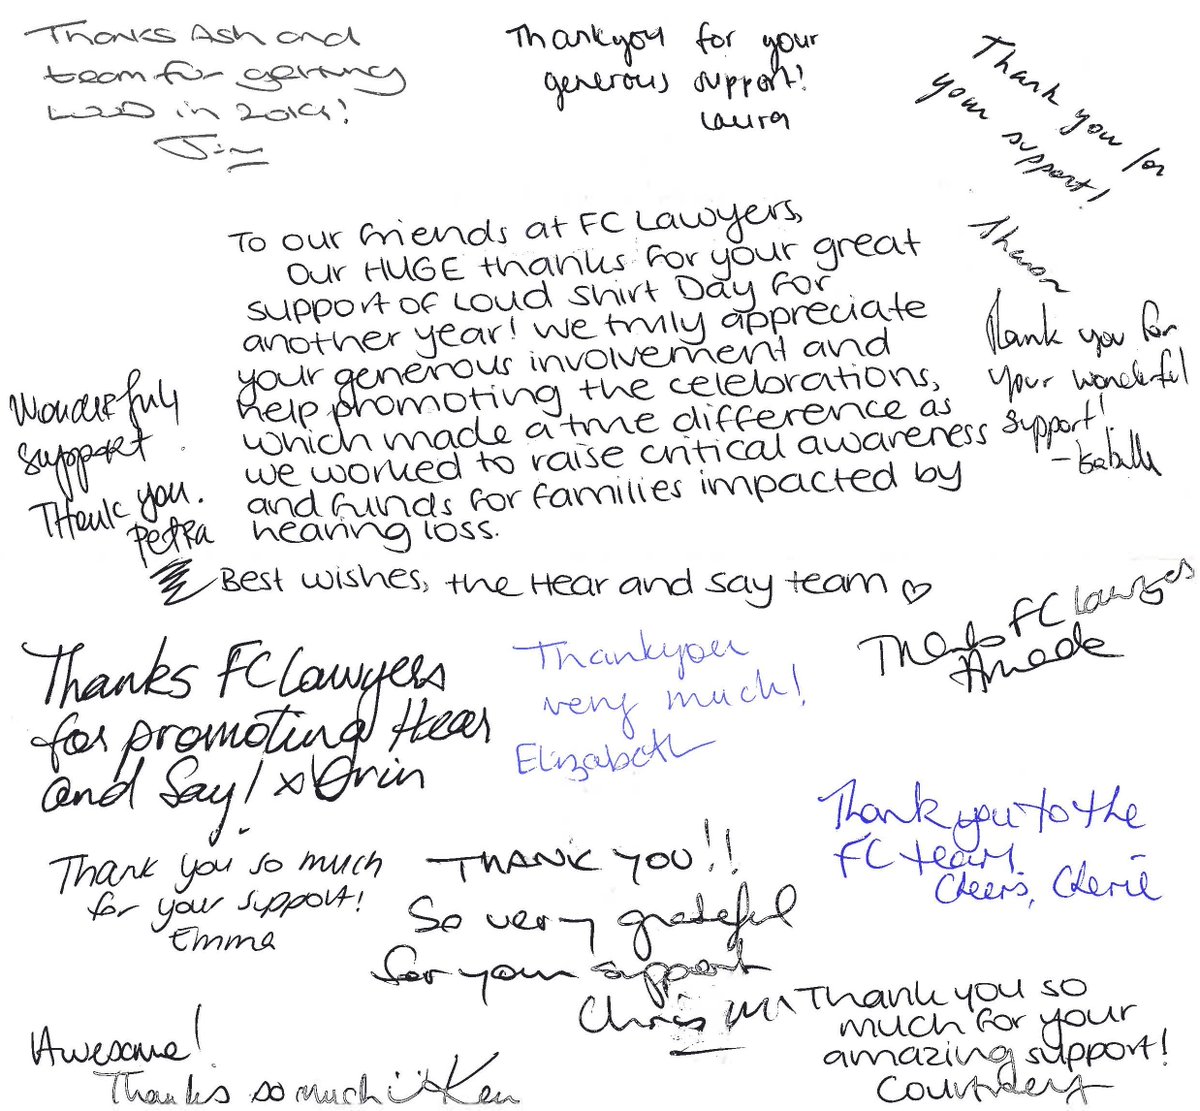 Thanks Ash and
team for getting
LOUD in 2019!
Jim
Thankyou for your
generous support!
Laura
Thank you for
your support!
To our friends at FC Lawyers,
Our HUGE thanks for your great
support of Loud Shirt Day for
another year! We truly appreciate
your generous involvement and
help promoting the celebrations,
which made a true difference as
we worked to raise critical awareness
and funds for families impacted by
hearing loss.
Best wishes, the Hear and Say team ♡
Thank you for
your wonderful
support!
Wonderful
support.
Thank you.
Petra
Thanks FC Lawyers
for promoting Hear
and Say! x Orin
Thankyou
very much!
Elizabeth
Thanks FC Lawyers
Thank you to the
FC team.
Cheers, Cherie
Thank you so much
for your support!
Emma
THANK YOU!!
So very grateful
for your support
Chris
Thank you so
much for your
amazing support!
Courtney
Awesome!
Thanks so much Ken